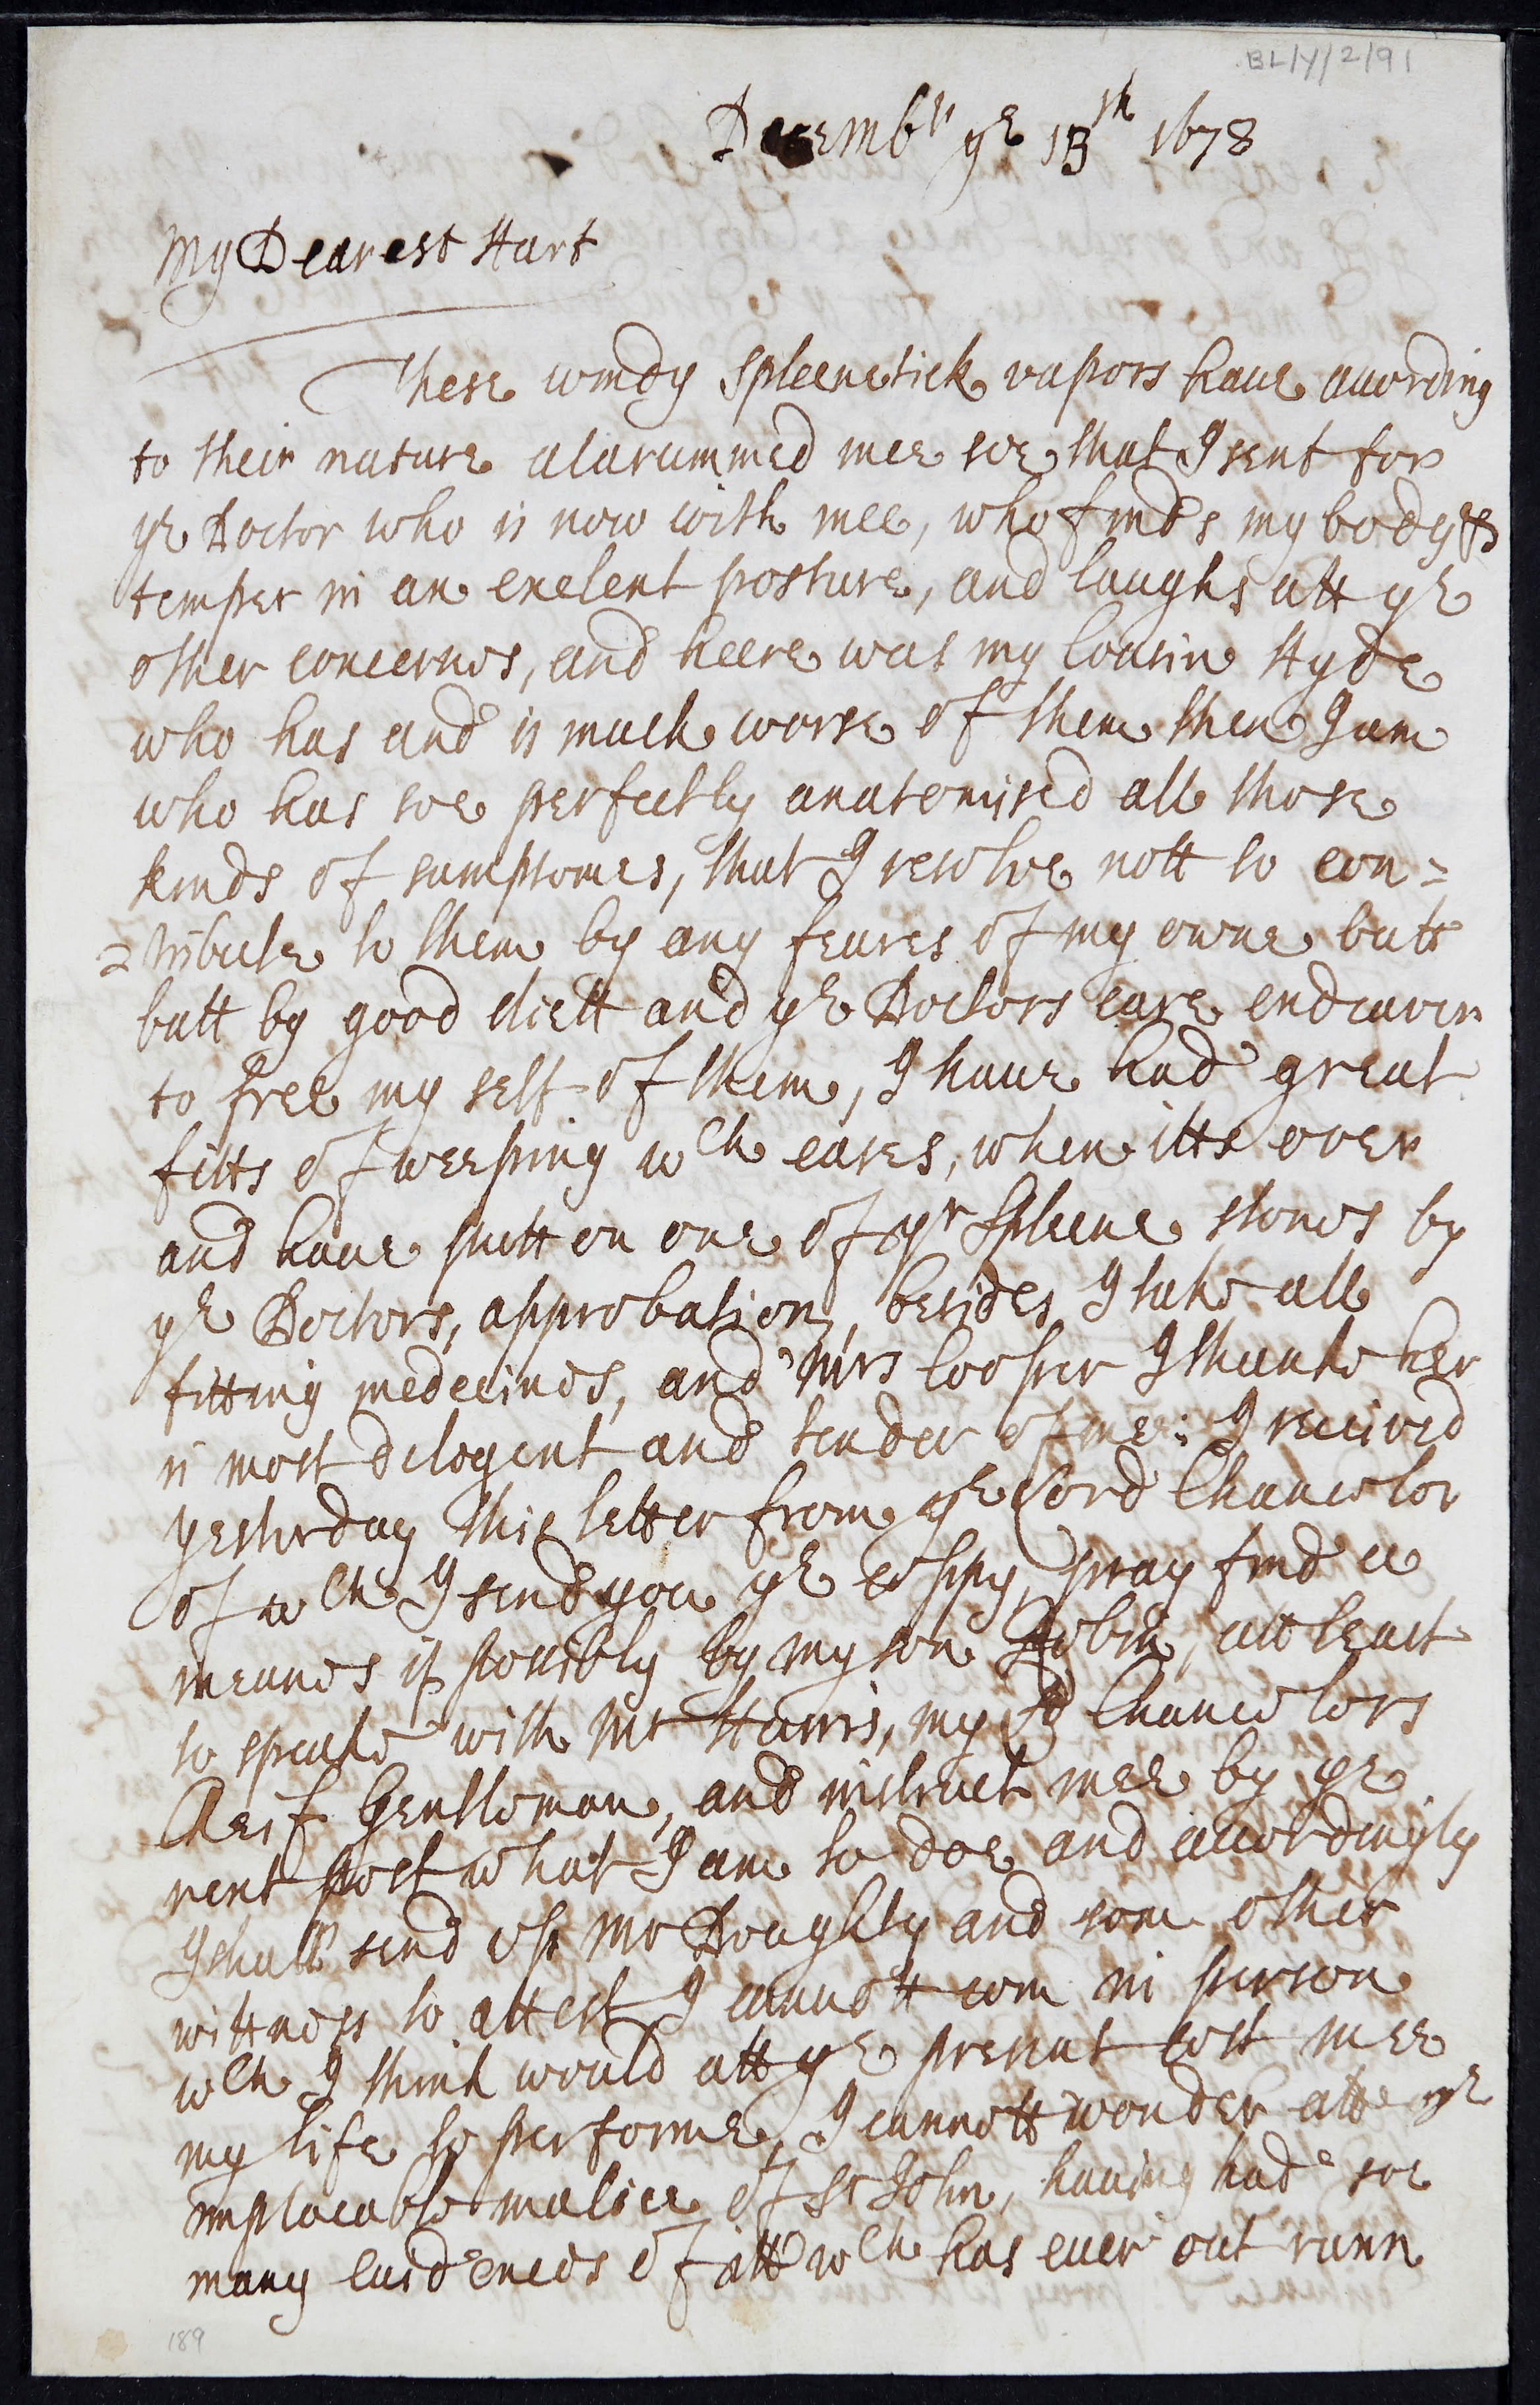 BL/Y/2/91
Decembr ye 13th 1678
My Dearest Hart
These windy Spleenetick vapors haue acording
to their nature alarummed mee soe that I sent for
ye Doctor who is now with mee, who finds my body &
temper in an exelent posture, and laughs att ye
other concernes, and heere was my Cousin Hyde
who has and is much worse of them then I am
who has soe perfectly anatomised all those
kinds of sumptomes, that I resolve nott to con=
=tribute to them by any feares of my owne butt
butt by good diett and ye Doctors care endeavor
to free my self of them, I haue had great
fitts of weeping wch eases, when itts over
and haue putt on one of yr Spleene stones by
ye Doctors, approbation, besides I take all
fitting medecines, and Mrs Cooper I thanke her
is most deligent and tender of mee: I received
yesterday this letter from ye Lord Chancelor
of wch I send you ye coppy, pray find a
meanes if possibly by my son Robin, att least
to speake with Mr Harris, my Ld Chancelors
Cheif Gentleman, and instruct mee by ye
next post what I am to doe and accordingly
I shall send up Mr Doughty and som other
wittness to attest I cannott com in person
wch I think would att ye present cost mee
my life to performe, I cannott wonder att ye
implacable malice of Sr John, hauing had soe
many euidences of itt wch has euer out runn
189